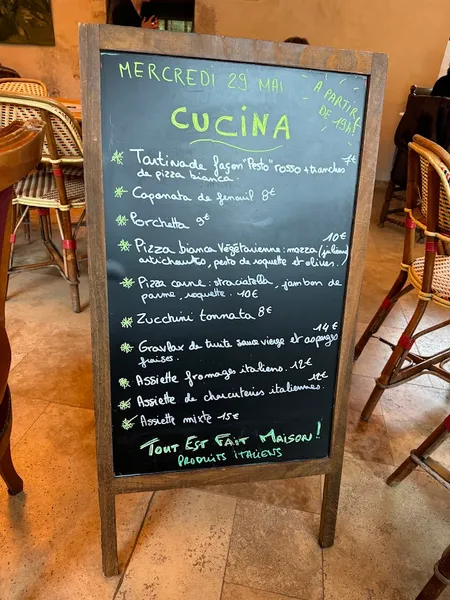 MERCREDI 29 MAI
À PARTIR
DE 19H
CUCINA
Tartinade façon "Pesto" rosso + tranches 7€
de pizza bianca.
Caponata de fenouil 8€
Porchetta 9€
Pizza bianca Végétarienne : mozza 10€
artichauts, pesto de roquette et olives.
Pizza carne : straciatella, jambon de
parme, roquette. 10€
Zucchini tonnata 8€
Gravlax de truite sauce vierge et asperges 14€
fraises.
Assiette fromages italiens. 12€
Assiette de charcuteries italiennes. 12€
Assiette mixte 15€
TOUT EST FAIT MAISON !
PRODUITS ITALIENS